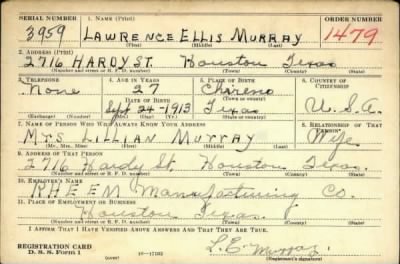 SERIAL NUMBER 1. NAME (Print) ORDER NUMBER
3959 LAWRENCE ELLIS MURRAY 1479
(First) (Middle) (Last)
2. ADDRESS (Print)
2716 HARDY ST. Houston Texas
(Number and street or R. F. D. number) (Town) (County) (State)
3. TELEPHONE 4. AGE IN YEARS 5. PLACE OF BIRTH 6. COUNTRY OF CITIZENSHIP
None 27 Chireno
DATE OF BIRTH (Town or county)
Sept 24 - 1913 Texas U.S.A.
(Exchange) (No.) (Mo.) (Day) (Yr.) (State or country)
7. NAME OF PERSON WHO WILL ALWAYS KNOW YOUR ADDRESS 8. RELATIONSHIP OF THAT PERSON
Mrs LILLIAN MURRAY Wife
(Mr., Mrs., Miss) (First) (Middle) (Last)
9. ADDRESS OF THAT PERSON
2716 Hardy St. Houston Texas.
(Number and street or R. F. D. number) (Town) (County) (State)
10. EMPLOYER'S NAME
RHEEM Manufacturing Co.
11. PLACE OF EMPLOYMENT OR BUSINESS
Houston Texas.
(Number and street or R. F. D. number) (Town) (County) (State)
I AFFIRM THAT I HAVE VERIFIED ABOVE ANSWERS AND THAT THEY ARE TRUE.
REGISTRATION CARD L. E. Murray
D. S. S. Form 1 (over) (Registrant's signature)